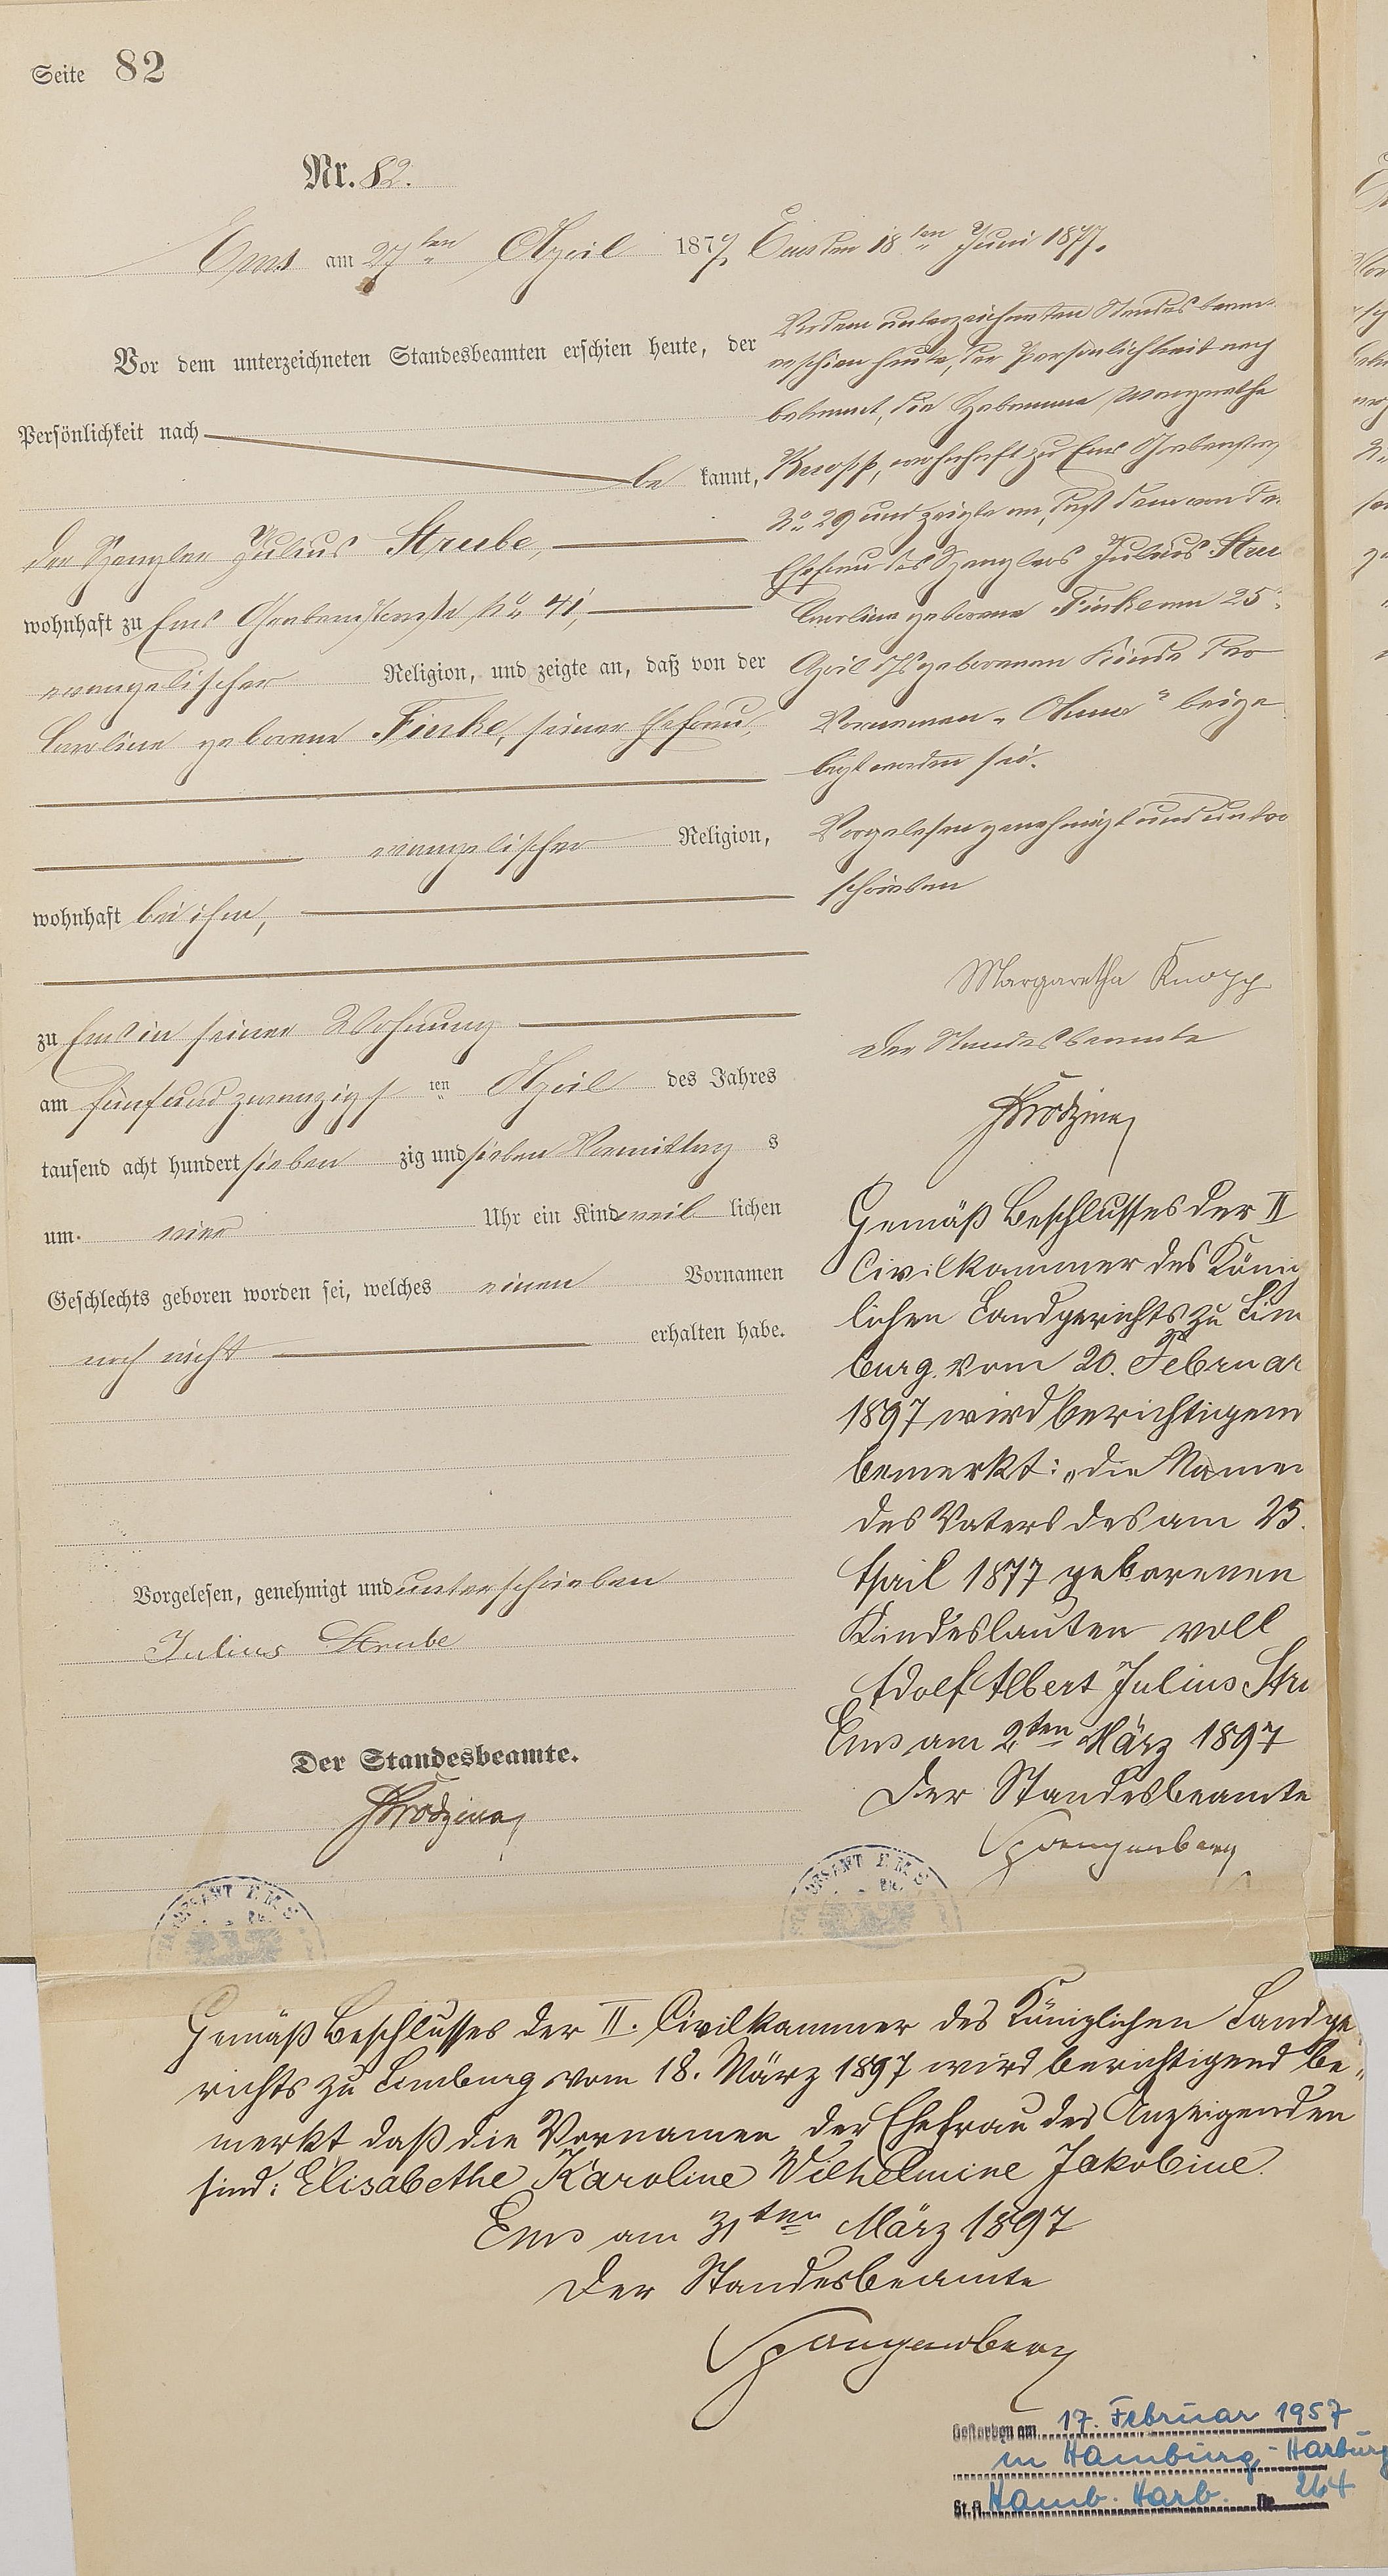 Seite 82
Nr. 82.
Ems am 27ten April 1877.
Vor dem unterzeichneten Standesbeamten erschien heute, der
Persönlichkeit nach
be kannt,
der Spengler Julius Strube,
wohnhaft zu Ems Grabenstraße No 41,
evangelischer Religion, und zeigte an, daß von der
Caroline geborene Finke, seiner Ehefrau,
evangelischer Religion,
wohnhaft bei ihm,
zu Ems in seiner Wohnung
am fünfundzwanzigs ten April des Jahres
tausend acht hundert sieben zig und sieben Vormittag s
um vier Uhr ein Kind weib lichen
Geschlechts geboren worden sei, welches einen Vornamen
noch nicht erhalten habe.
Vorgelesen, genehmigt und unterschrieben
Julius Strube
Der Standesbeamte.
Ems den 18ten Juni 1877.
Vor dem unterzeichneten Standesbeam-
erschien heute, der Persönlichkeit nach
bekannt, die Hebamme Margaretha
Knopp, wohnhaft zu Ems Grabenstraß
No 29 und zeigte an, daß dem von der
Ehefrau des Spenglers Julius Stru
Caroline geborene Finke am 25.
April d Js geborenen Kinde der
Vornamen „Anna" beige
legt worden sei.
Vorgelesen genehmigt und unter
schrieben
Margaretha Knopp
Der Standesbeamte
Gemäß Beschlusses der II
Civilkammer des König
lichen Landgerichts zu Lim
burg vom 20. Februar
1897 wird berichtigend
bemerkt: „die Namen
des Vaters des am 25.
April 1877 geborenen
Kindes lauten voll
Adolf Albert Julius Stru
Ems am 2ten März 1897
Der Standesbeamte
Spangenberg
STANDESAMT EMS
STANDESAMT EMS
Gemäß Beschlusses der II. Civilkammer des Königlichen Landge
richts zu Limburg vom 18. März 1897 wird berichtigend be-
merkt daß die Vornamen der Ehefrau des Anzeigenden
sind: Elisabethe Karoline Wilhelmine Jakobine.
Ems am 31ten März 1897
Der Standesbeamte
Spangenberg
Gestorben am 17. Februar 1957
in Hamburg-Harburg
St.A. Hamb. Harb. Nr. 264